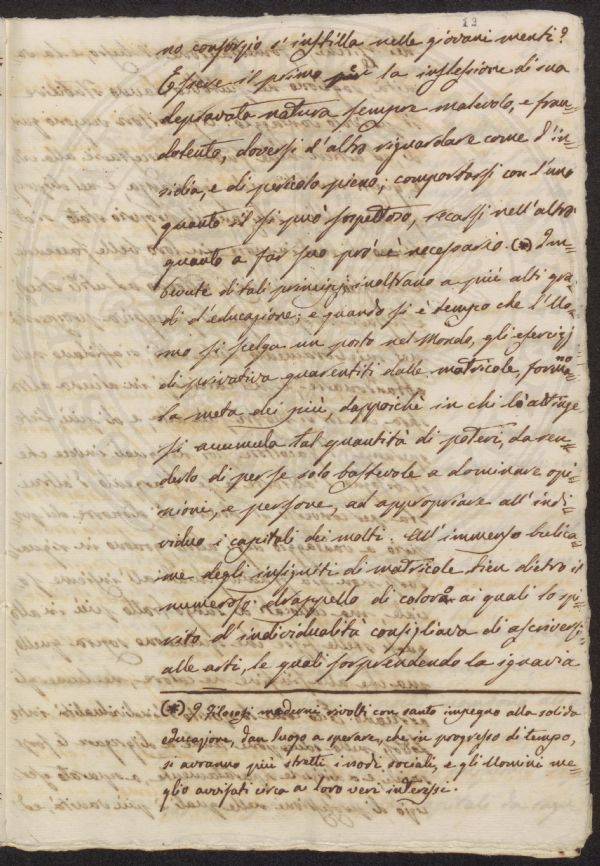 12
no consorzio s'instilla nelle giovani menti?
Essere il primo per la inflessione di sua
depravata natura sempre malevolo, e frau=
dolento, doversi l'altro riguardare come d'in=
sidia, e di pericolo pieno; comportarsi con l'uno
quanto il si può sospettoso, recarsi nell'altro
quanto a far suo prò è necessario. (*) Im=
bevute di tali principj inoltrano a più alti gra=
di d'educazione; e quando si è tempo che l'Uo=
mo si scelga un posto nel Mondo, gli esercizj
di privativa guarentiti dalle matricole, formano
la meta dei più, dappoichè in chi la attinge
si accumula tal quantità di poteri, da ren=
derlo di per se solo bastevole a dominare opi=
nioni, e persone, ad appropriare all'indi=
viduo i capitali dei molti. All'immenso bulica=
me degli insigniti di matricole tien dietro il
numeroso drappello di coloro ai quali lo spi=
rito d'individualità consigliava di ascriversi
alle arti, le quali sorprendendo la ignavia
(*) I Filosofi moderni rivolti con santo impegno alla solida
educazione, dan luogo a sperare, che in progresso di tempo,
si avranno più stretti i nodi sociali, e gli Uomini me=
glio avvisati circa a loro veri interessi.